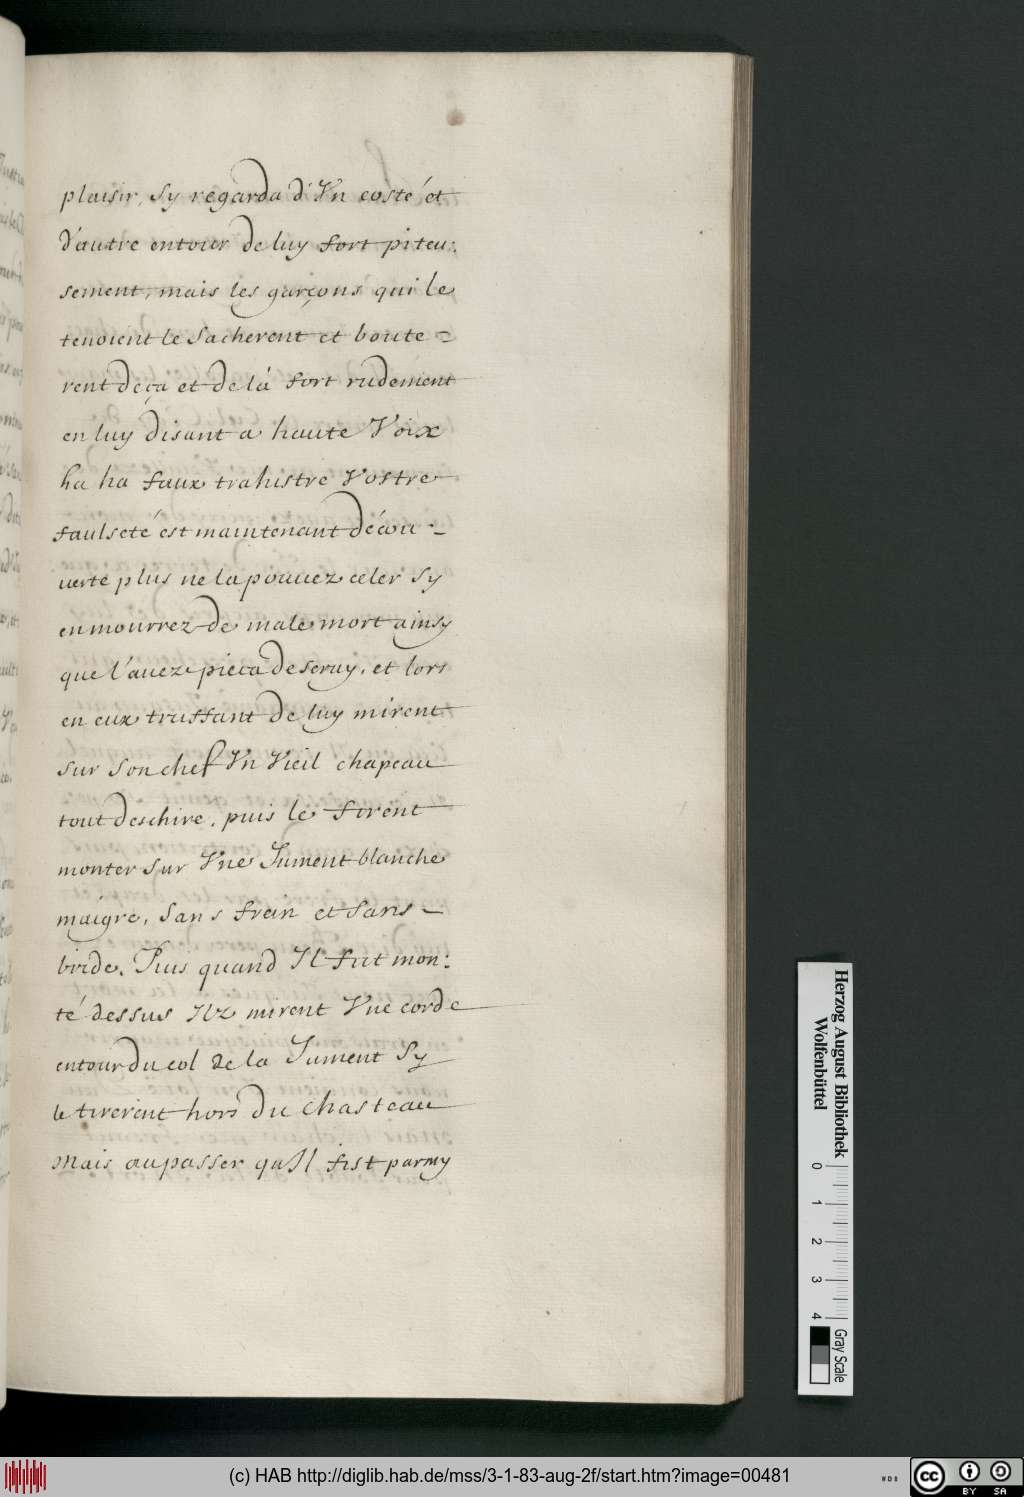 plaisir, sy regarda d'Vn costé et
d'autre entour de luy fort piteu:
sement, mais les garçons qui le
tenoient le sacherent et boute-
rent deça et de là fort rudement
en luy disant a haute Voix
ha ha faux trahistre Vostre
faulseté est maintenant décou-
verte plus ne la pouuez celer sy
en mourrez de male mort ainsy
que l'auez pieca deseruy, et lors
en eux truffant de luy mirent
sur son chef Vn Vieil chapeau
tout deschire, puis le firent
monter sur Vne Jument blanche
maigre, sans frein et sans
bride. Puis quand Il fut mon:
té dessus Ilz mirent Vne corde
entour du col de la Jument sy
le tirerent hors du chasteau
Mais au passer qu'Il fist parmy
Herzog August Bibliothek
Wolfenbüttel
0 1 2 3 4
Gray Scale
(c) HAB http://diglib.hab.de/mss/3-1-83-aug-2f/start.htm?image=00481
WDB
cc BY SA